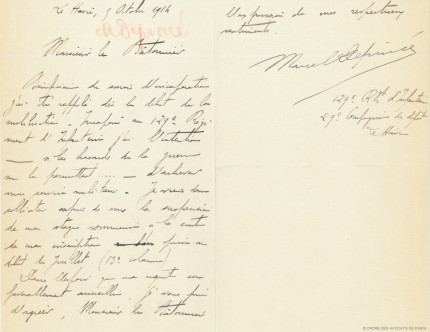 Le Havre, 5 Octobre 1914
Monsieur le Bâtonnier
j'ai été rappelé dès le début de la
mobilisation. Incorporé au 129e Régi
ment d'Infanterie j'ai l'intention
— si les hasards de la guerre
me le permettent ..... — d'achever
mon service militaire. Je viens donc
solliciter auprès de vous la suspension
de mon stage commencé à la suite
de mon inscription prise au
début de Juillet (13e colonne)
Dans l'espoir que ma requête sera
favorablement accueillie, je vous prie
d'agréer, Monsieur le Bâtonnier
l'expression de mes respectueux
sentiments.
Marcel
129e Rgt d'Infanterie
29e Compagnie de dépôt
Le Havre
© ORDRE DES AVOCATS DE PARIS